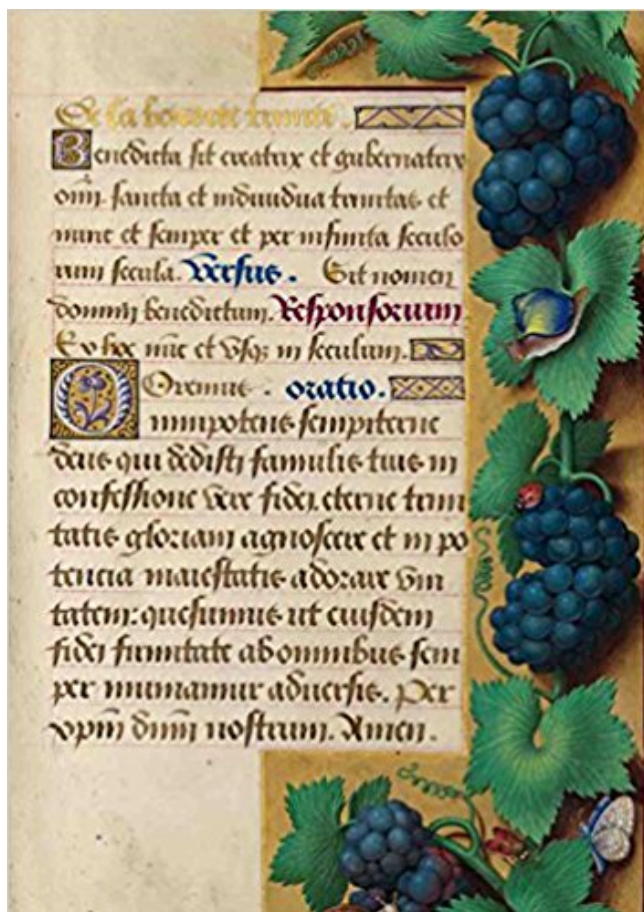 De la benoiste trinite.
Benedicta sit creatrix et gubernatrix
oim̄. sancta et indiuidua trinitas et
nunc et semper et per infinita seculo
rum secula. Versus. Sit nomen
domini benedictum. Responsorium
Ex hoc nūc et vsqz in seculum.
Oremus. oratio.
Omnipotens sempiterne
deus qui dedisti famulis tuis in
confessione vere fidei. eterne trini
tatis gloriam agnoscere et in po
tencia maiestatis adorare vni
tatem: quesumus ut eiusdem
fidei firmitate ab omnibus sem
per muniamur aduersis. Per
xpm̄ dnm̄ nostrum. Amen.